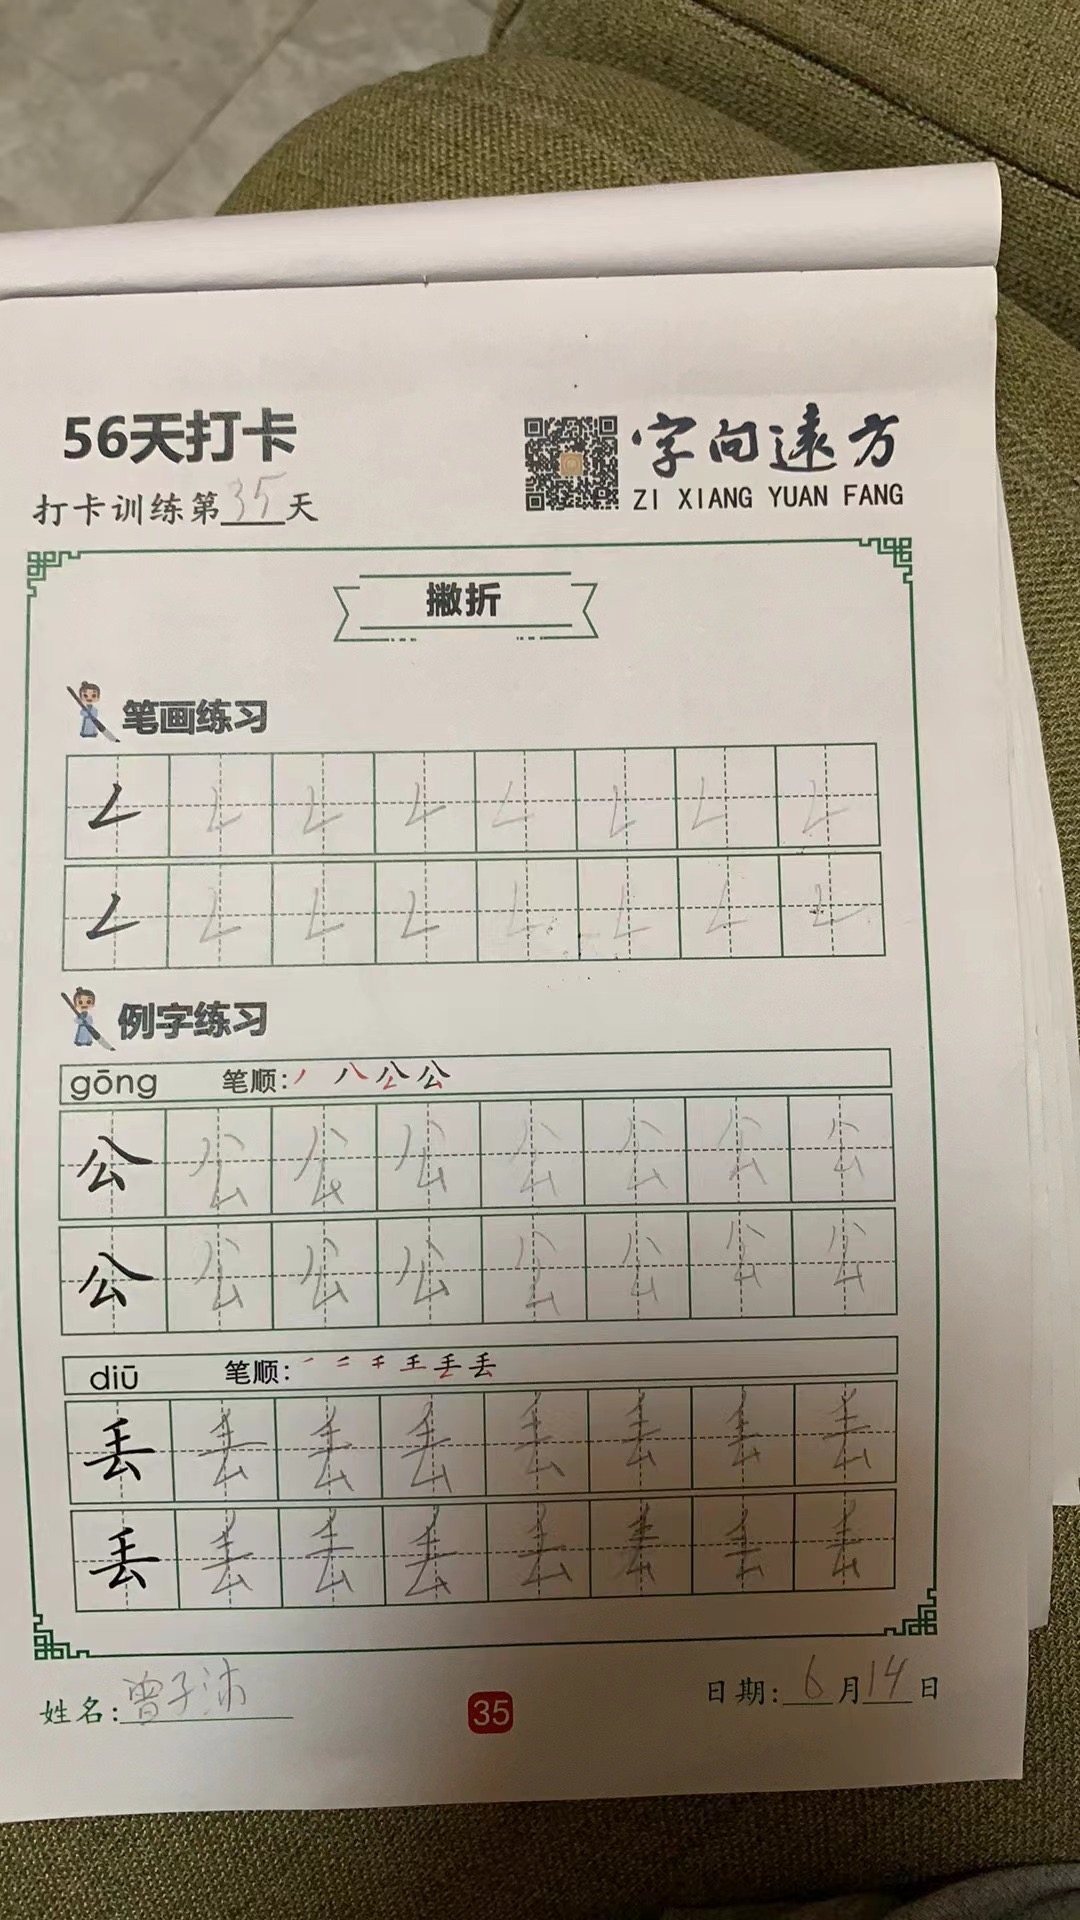 56天打卡
字向遠方
打卡训练第35天
ZI XIANG YUAN FANG
撇折
笔画练习
例字练习
gōng 笔顺: 丿 八 公 公
公 公 公 公 公 公 公 公
公 公 公 公 公 公 公 公
diū 笔顺: 一 二 王 丢 丢
丢 丢 丢 丢 丢 丢 丢 丢
丢 丢 丢 丢 丢 丢 丢 丢
姓名: 曾子沐
35
日期: 6月14日